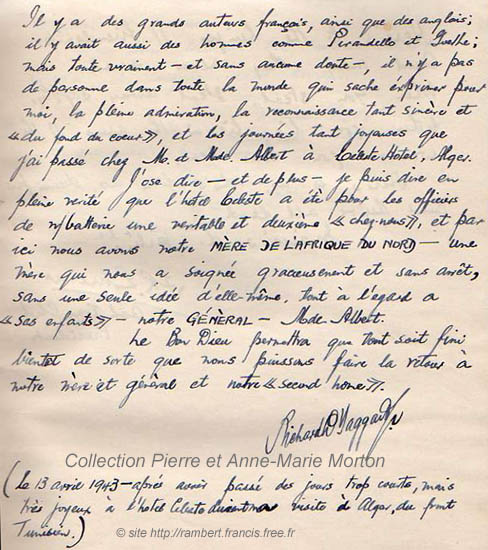 Il y a des grands auteurs français, ainsi que des anglais;
il y avait aussi des hommes comme Pirandello et Goethe;
mais toute vraiment – et sans aucune doute –, il n'y a pas
de personne dans toute la monde qui sache exprimer pour
moi, la pleine admiration, la reconnaissance tant sincère et
«du fond du coeur», et les journées tant joyeuses que
j'ai passé chez M. et Mde. Albert à Celeste Hotel, Alger.
J'ose dire – et de plus – je puis dire en
pleine verité que l'hôtel Celeste a été pour les officiers
de m/batterie une veritable et deuxième «chez-nous», et par
ici nous avons notre MÈRE DE L'AFRIQUE DU NORD – une
mère qui nous a soignée gracieusement et sans arrêt,
sans une seule idée d'elle-même, tout à l'égard a
«ses enfants» – notre GÉNÉRAL – Mde. Albert.
Le Bon Dieu permettra que tout soit fini
bientot de sorte que nous puissons faire la retour à
notre mère et général et notre «second home».
Richard D
Collection Pierre et Anne-Marie Morton
(Le 13 avril 1943 – après avoir passé des jours trop courts, mais
très joyeux à l'hotel Celeste durant ma visite à Alger du front
Tunisien.)
© site http://rambert.francis.free.fr